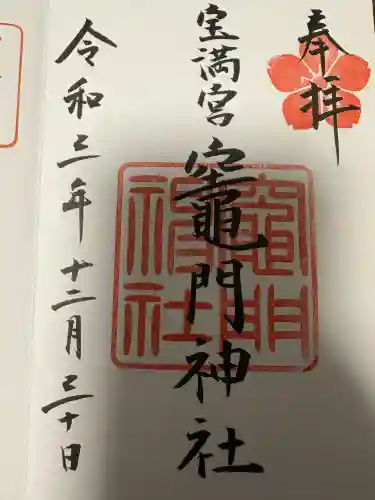 奉拝
宝満宮 竈門神社
令和三年十二月三十日
竈門
神社